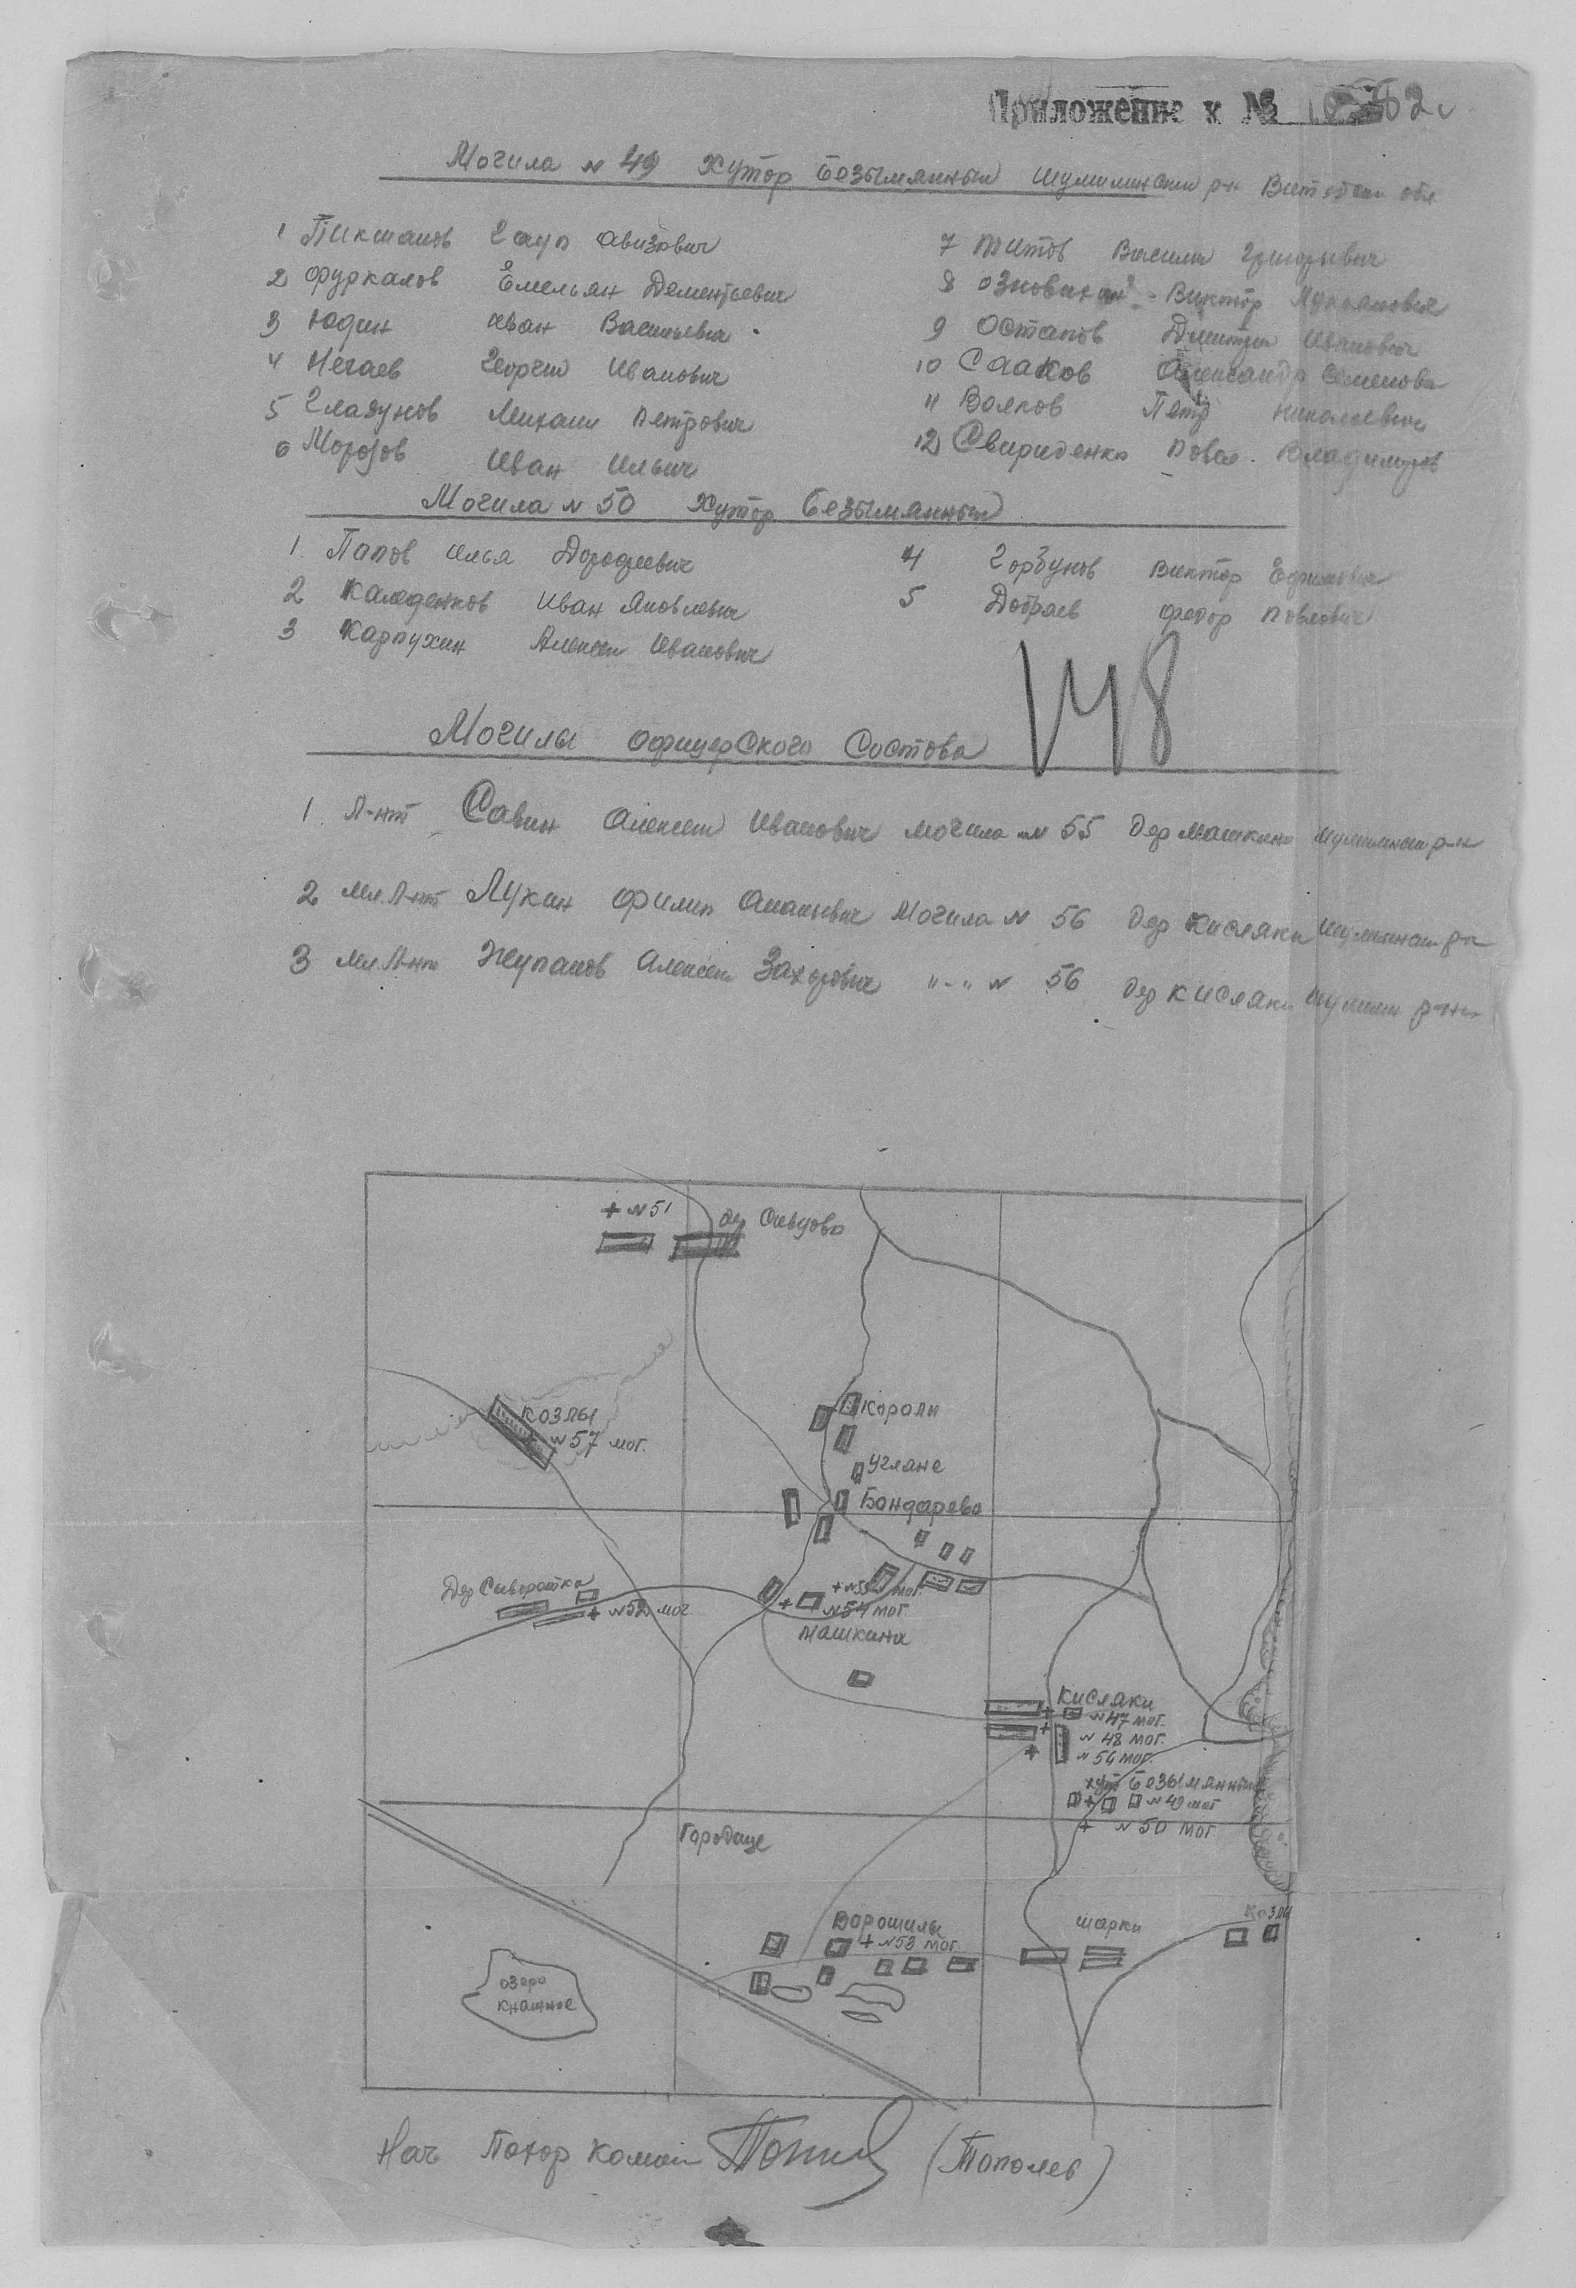 Приложение к №
Могила N 49 Хутор Безымянный Шумилинский р-н Витебской обл
1 Пикшапов Гауп Авизович
2 Фуркалов Емельян Дементьевич
3 Юдин Иван Васильевич
4 Негаев Георгий Иванович
5 Глазунов Михаил Петрович
6 Морозов Иван Ильич
7 Титов Василий Григорьевич
8 Виктор Лукьянович
9 Остапов Дмитрий Иванович
10 Сааков Александр Семенови
11 Волков Петр Николаевич
12 Свириденко Повел Владимиров
Могила N 50 Хутор Безымянный
1. Папов Илья Дорофеевич
2 Каледенков Иван Яковлевич
3 Карпухин Алексей Иванович
4 Горбунов Виктор Ефимович
5 Добряев Федор Повлович
148
Могилы офицерского состова
1. Л-нт Савин Алексей Иванович могила N 55 дер Машкина Шумилинский р-н
2 Мл. Л-нт Лукин Филип Ананьевич Могила N 56 дер Кисляки Шумилинский р-н
3 Мл. Л-нт Жупанов Алексей Захорович "-" N 56 дер Кисляки Шумилин р-н
+ N 51
дер Сивцово
Козлы
N 57 мог.
Короли
Угляне
Бондарево
Дер Сиворотка
+ N 52 мог
+ N 55 мог.
+ N 54 мог.
Машкина
Кисляки
N 47 мог.
N 48 мог.
N 56 мог.
хут Безымянный
N 49 мог
+ N 50 мог
Городище
Ворошилы
+ N 53 мог.
шарки
Козлы
озеро
Нач Похор Коман (Тополев)